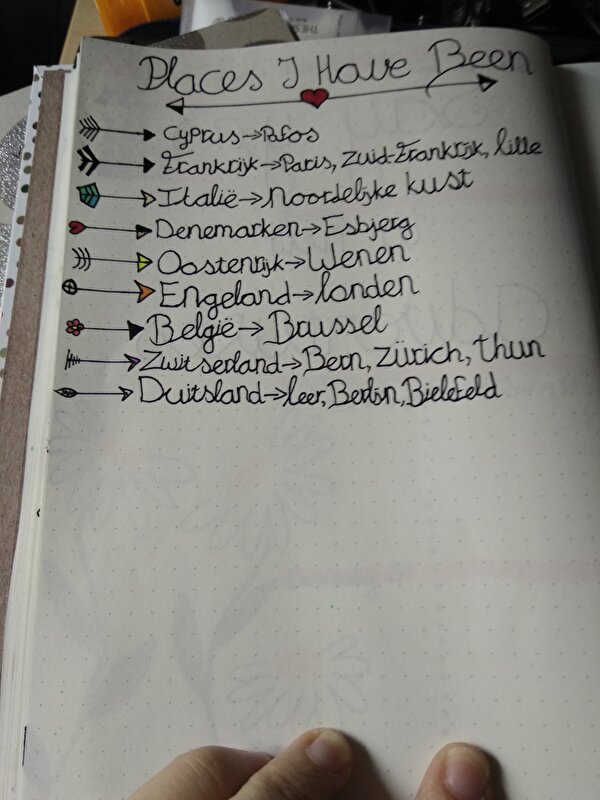 THE S
Places I Have Been
Cyprus→Pafos
Frankrijk→Paris, Zuid-Frankrijk, lille
Italië→Noordelijke kust
Denemarken→Esbjerg
Oostenrijk→Wenen
Engeland→londen
België→Brussel
Zwitserland→Bern, Zürich, thun
Duitsland→leer, Berlijn, Bielefeld